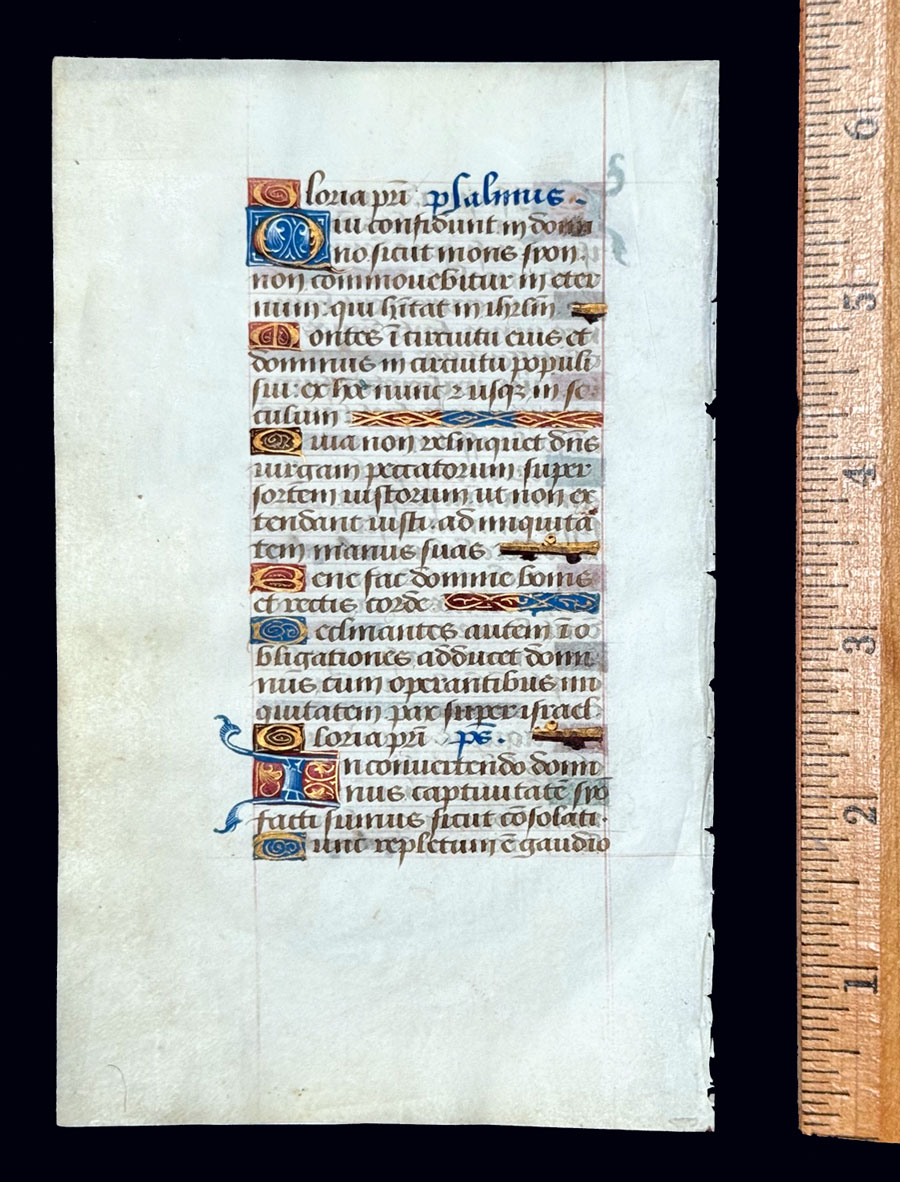 Gloria pri psalmus.
Qui confidunt in domi
no sicut mons syon:
non commovebitur in eter
num: qui hitat in ihrlm
Montes i circuitu eius et
dominus in circuitu populi
sui: ex hoc nunc ⁊ usqz in se
culum
Quia non relinquet dns
virgam peccatorum super
sortem iustorum, ut non ex
tendant iusti ad iniquitā
tem manus suas
Bene fac domine bonis
et rectis corde
Declinantes autem ī o
bligationes adducet domi
nus cum operantibus ini
quitatem pax super israel
Gloria pri ps.
In convertendo domi
nus captivitatē syō
facti sumus sicut cōsolati.
Tunc repletum ē gaudio
6
5
4
3
2
1